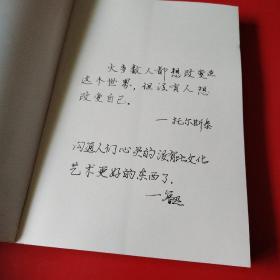 大多数人都想改变
这个世界，但没有人想
改变自己。
—托尔斯泰
沟通人们心灵的没有比文化
艺术更好的东西了。
—鲁迅